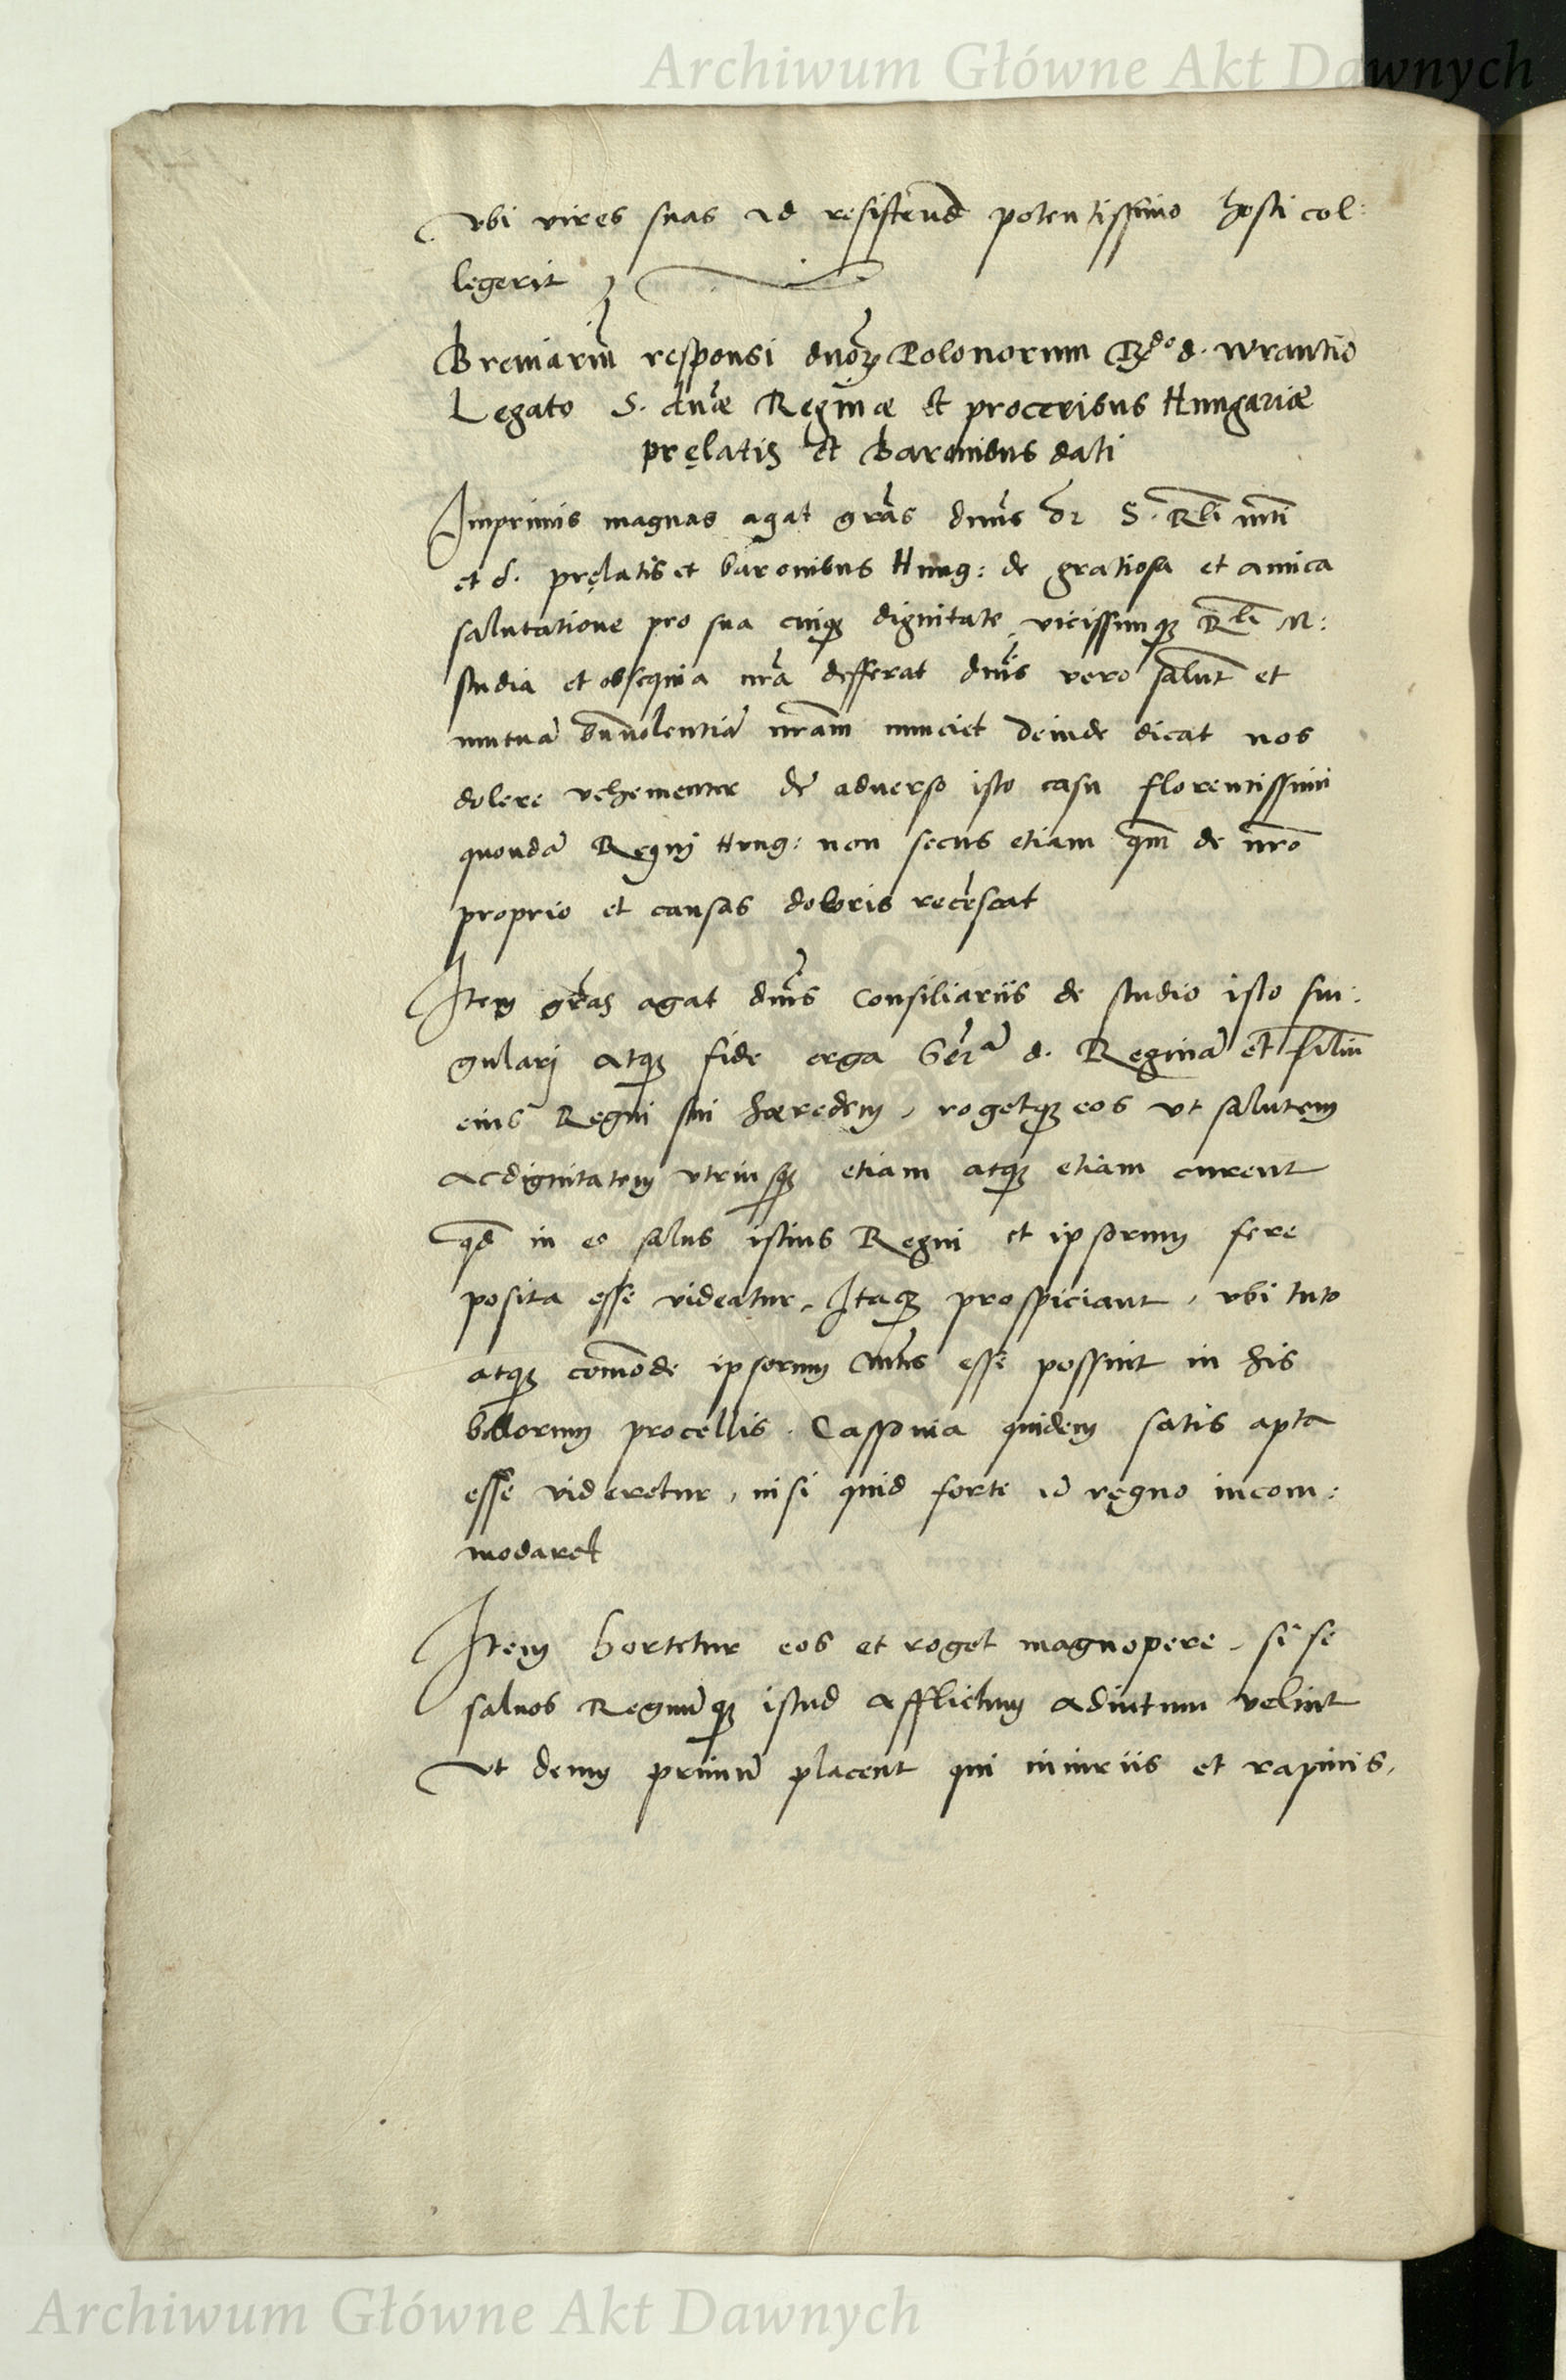 Archiwum Główne Akt Dawnych
vbi vires suas ad resistend potentissimo hosti col:
legerit
Breviariũ responsi dnoꝝ Polonorum Rdo d. Wrantio
Legato S. dnæ Reginæ et proceribus Hungariæ
pręlatis et Baronibus dati
Imprimis magnas agat grãs dnus dr S. Rli mti
et d. pręlatis et baronibus Hung: de gratiosa et amica
salutatione pro sua cuiqꝫ dignitate, vicissimqꝫ Rli M:
studia et obsequia nrã defferat dnis vero salutẽ et
mutuã bnuolentiã nrãm nunciet deinde dicat nos
dolere vehementer de aduerso isto casu florentissimi
quondã Regni Hung: non secus etiam qm de nrõ
proprio et causas doloris recẽseat
Item grãs agat dnis Consiliariis de studio isto sin:
gulari atqꝫ fide erga d. Reginã et filiũ
eius Regni sui hæredem, rogetqꝫ eos vt salutem
ac dignitatem vtriusqꝫ etiam atqꝫ etiam curent
qd in eo salus istius Regni et ipsorum fere
posita esse videatur, Itaqꝫ prospiciant, vbi tuto
atqꝫ comõde ipsorum esse possint in his
bellorum procellis. Cassouia quidem satis apta
esse videretur, nisi quid forte id regno incom:
modaret
Item hortetur eos et roget magnopere, si se
saluos Regnũqꝫ istud afflictum adiutum velint
vt deum primũ placent qui iniuriis et rapinis,
Archiwum Główne Akt Dawnych